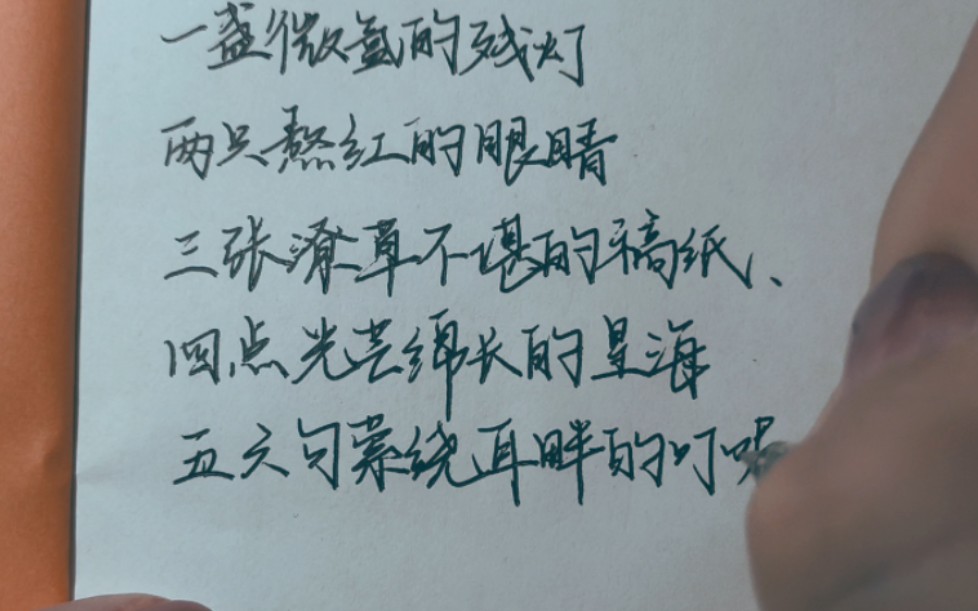 一盏微氲的残灯
两只熬红的眼睛
三张潦草不堪的稿纸、
四点光芒绵长的星海
五六句萦绕耳畔的叮